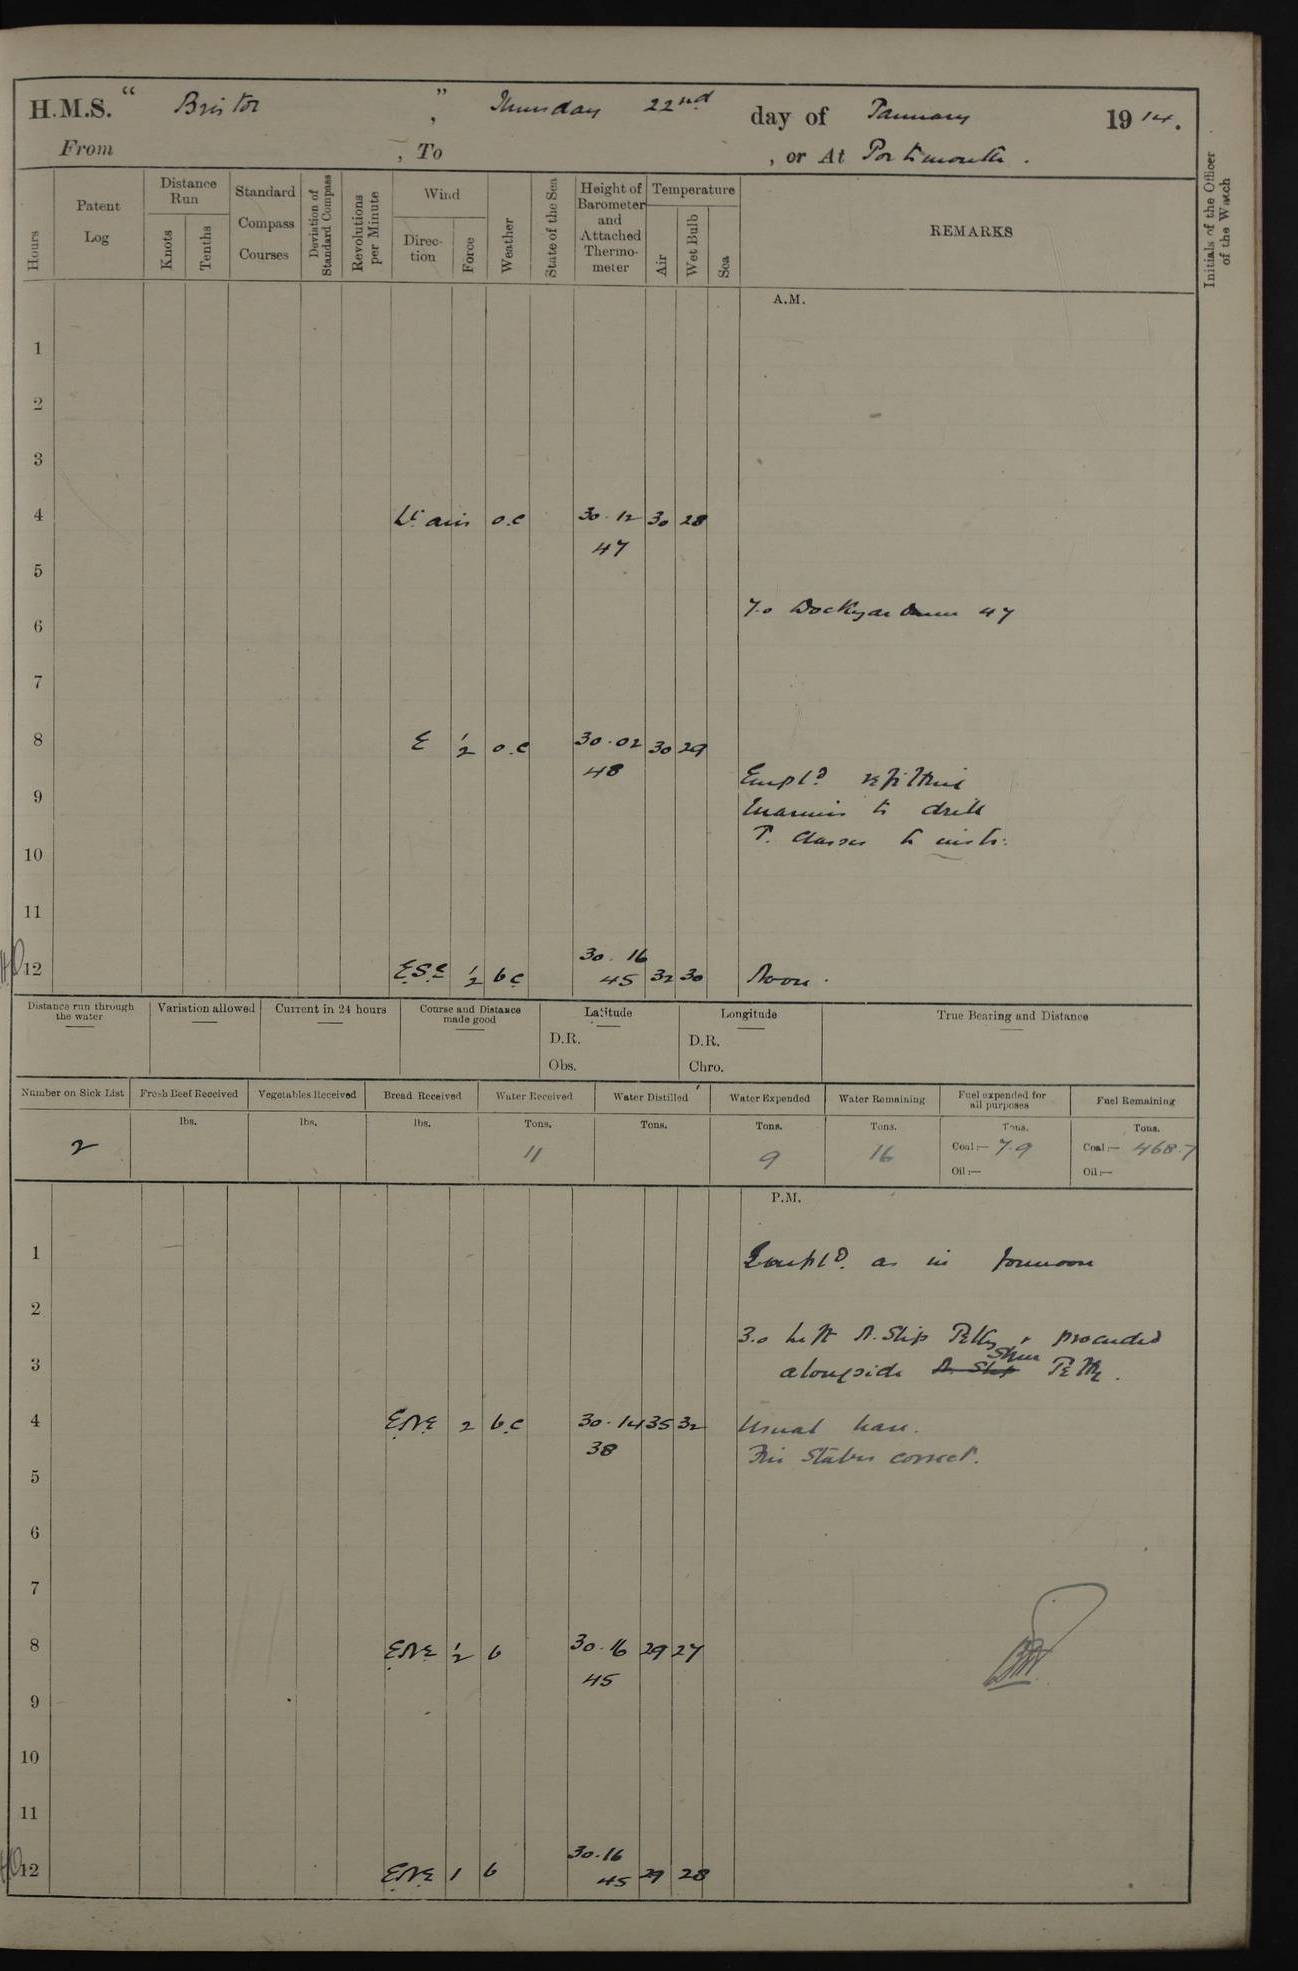 H.M.S. “ Bristol ” , Thursday 22nd day of January 1914.
From , To , or At Portsmouth.
Hours
Patent Log
Distance Run
Knots
Tenths
Standard Compass Courses
Deviation of Standard Compass
Revolutions per Minute
Wind
Direction
Force
Weather
State of the Sea
Height of Barometer and Attached Thermometer
Temperature
Air
Wet Bulb
Sea
REMARKS
Initials of the Officer of the Watch
A.M.
1
2
3
4 Lt airs o.c 30.12 30 28
47
5
7.0 Dockyard men 47
6
7
8 E 1/2 o.c 30.02 30 29
48
Empld. refitting
9
Marines to drill
P. Classes to instr:
10
11
30.16
12 E.S.E 1/2 b.c 45 32 30 Noon.
Distance run through the water
Variation allowed
Current in 24 hours
Course and Distance made good
Latitude
D.R.
Obs.
Longitude
D.R.
Chro.
True Bearing and Distance
Number on Sick List
Fresh Beef Received
Vegetables Received
Bread Received
Water Received
Water Distilled
Water Expended
Water Remaining
Fuel expended for all purposes
Fuel Remaining
lbs. lbs. lbs. Tons. Tons. Tons. Tons. Tons. Tons.
2 11 9 16 Coal:— 7.9 Coal:— 468.7
Oil:— Oil:—
P.M.
1 Empld. as in forenoon
2
3.0 Left N. Slip Jetty & proceeded
3 alongside N. Slip Sheer Jetty.
4 E.N.E 2 b.c 30.14 35 32 Usual leave.
38
Fire Stations correct.
5
6
7
8 E.N.E 1/2 b 30.16 29 27
45
9
10
11
30.16
12 E.N.E 1 b 45 29 28